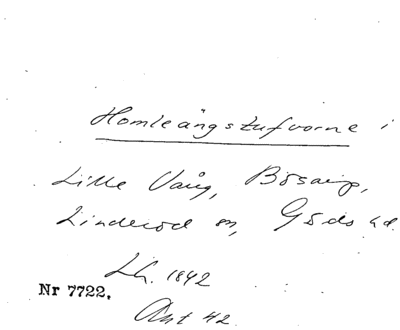 Homleängstufvorne i
Lille Vång, Bösarp,
Linderöd sn, Gärds hd.
Lh. 1842
Nr 7722.
Akt 42